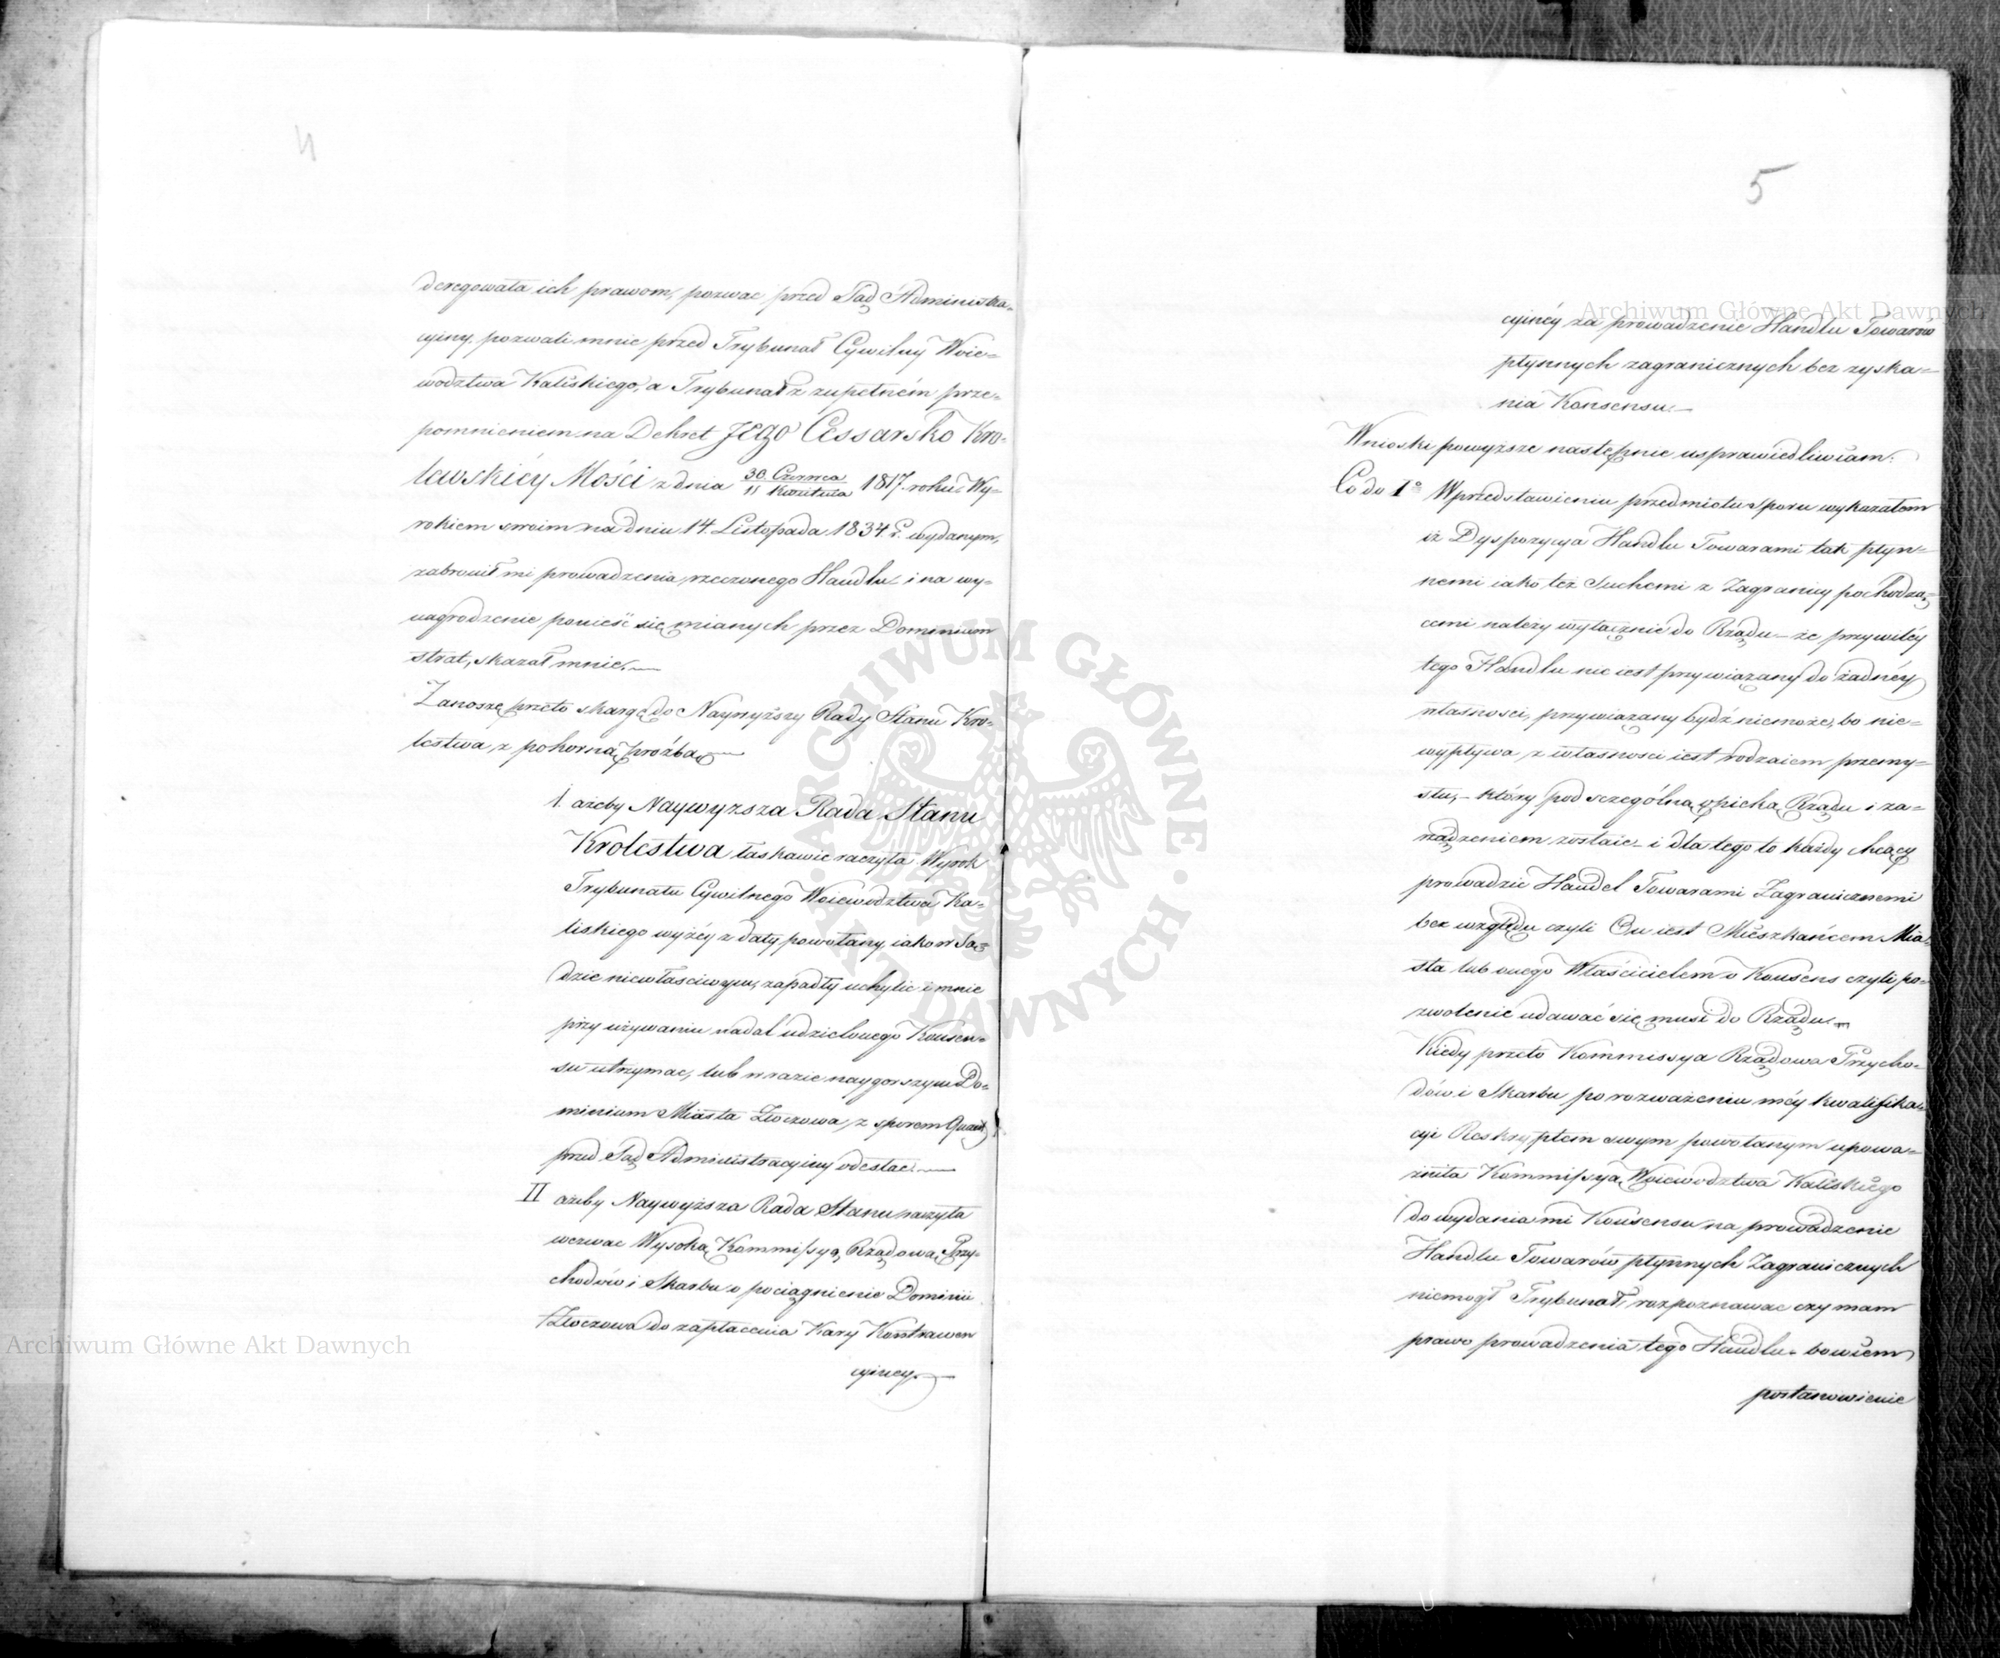 4
deregowała ich prawom, pozwać przed Sąd Administra-
cyiny, pozwali mnie przed Trybunał Cywilny Woie-
wództwa Kaliskiego, a Trybunał z zupełném prze-
pomnieniem na Dekret JEGO Cessarsko Kro-
lewskiéy Mości z dnia 30 Czerwca / 11 Kwietnia 1817. roku Wy-
rokiem swoim na dniu 14. Listopada 1834 r. wydanym,
zabronił mi prowadzenia rzeczonego Handlu i na wy-
nagrodzenie ponieść się mianych przez Dominium
strat, skazał mnie.—
Zanoszę przeto skargę do Naywyższy Rady Stanu Kro-
lestwa, z pokorną proźbą—
I. ażeby Naywyzsza Rada Stanu
Krolestwa łaskawie raczyła Wyrok
Trybunału Cywilnego Woiewodztwa Ka-
liskiego wyżéy z daty powołany, iako w Są-
dzie niewłasciwym, zapadły uchylić i mnie
przy używaniu nadal udzielonego Konsen-
su utrzymać, lub w razie naygorszym Do-
minium Miasta Złoczowa, z sporem Quaest
przed Sąd Administracyiny odesłać.—
II ażeby Naywyższa Rada Stanu raczyła
wezwać Wysoką Kommissyą Rządową Przy-
chodów i Skarbu o pociągnienie Dominii
Złoczowa do zapłacenia Kary Kontrawen
cyiney.
5
cyinéy za prowadzenie Handlu Towarów
płynnych zagranicznych bez zyska-
nia Konsensu.—
Wnioski powyższe następnie usprawiedliwiam:
Co do I° W przedstawieniu przedmiotu sporu wykazałem
iż Dyspozycya Handlu Towarami tak płyn-
nemi iako też Suchemi z Zagranicy pochodzą-
cemi należy wyłącznie do Rządu— że przywiléy
tego Handlu nie iest przywiązany do żadnéy
własnosci, przywiązany bydź niemoże, bo nie-
wypływa z własnosci iest rodzaiem przemy-
słu,— który pod sczególną opieką Rządu i za-
rządzeniem zostaie— i dla tego to każdy chcący
prowadzić Handel Towarami Zagranicznemi
bez względu czyli On iest Mieszkańcem Mia-
sta lub onego Właścicielem o Konsens czyli po-
zwolenie udawać się musi do Rządu.—
Kiedy przeto Kommissya Rządowa Przycho-
dów i Skarbu po rozważeniu méy kwalifika-
cyi Reskryptem swym powołanym upowa-
żniła Kommissyą Woiewodztwa Kaliskiego
do wydania mi Konsensu na prowadzenie
Handlu Towarów płynnych Zagranicznych
niemógł Trybunał, rozpoznawać czy mam
prawo prowadzenia tego Handlu. bowiem
postanowienie
Archiwum Główne Akt Dawnych
Archiwum Główne Akt Dawnych
ARCHIWUM GŁÓWNE AKT DAWNYCH